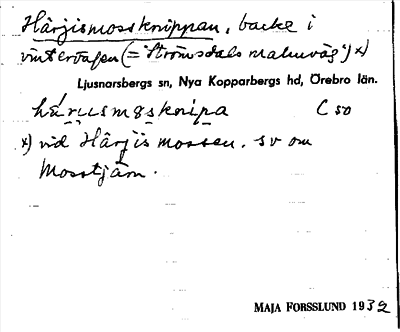 Härjismossknippan, backe i
vintervägen (= "Strömsdals malmväg") x)
Ljusnarsbergs sn, Nya Kopparbergs hd, Örebro län.
C 50
x) vid Härjismossen. sv om
Mosstjärn.
MAJA FORSSLUND 1932